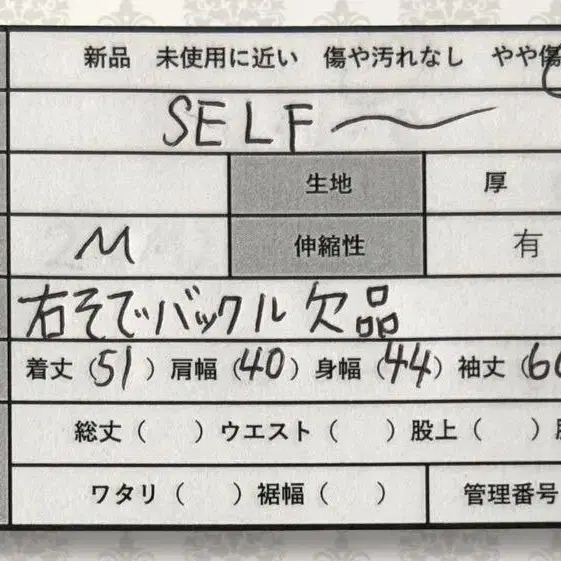 新品 未使用に近い 傷や汚れなし やや傷
SELF〜
生地 厚
M 伸縮性 有
右そでバックル欠品
着丈（51）肩幅（40）身幅（44）袖丈（60
総丈（ ）ウエスト（ ）股上（ ）
ワタリ（ ）裾幅（ ） 管理番号